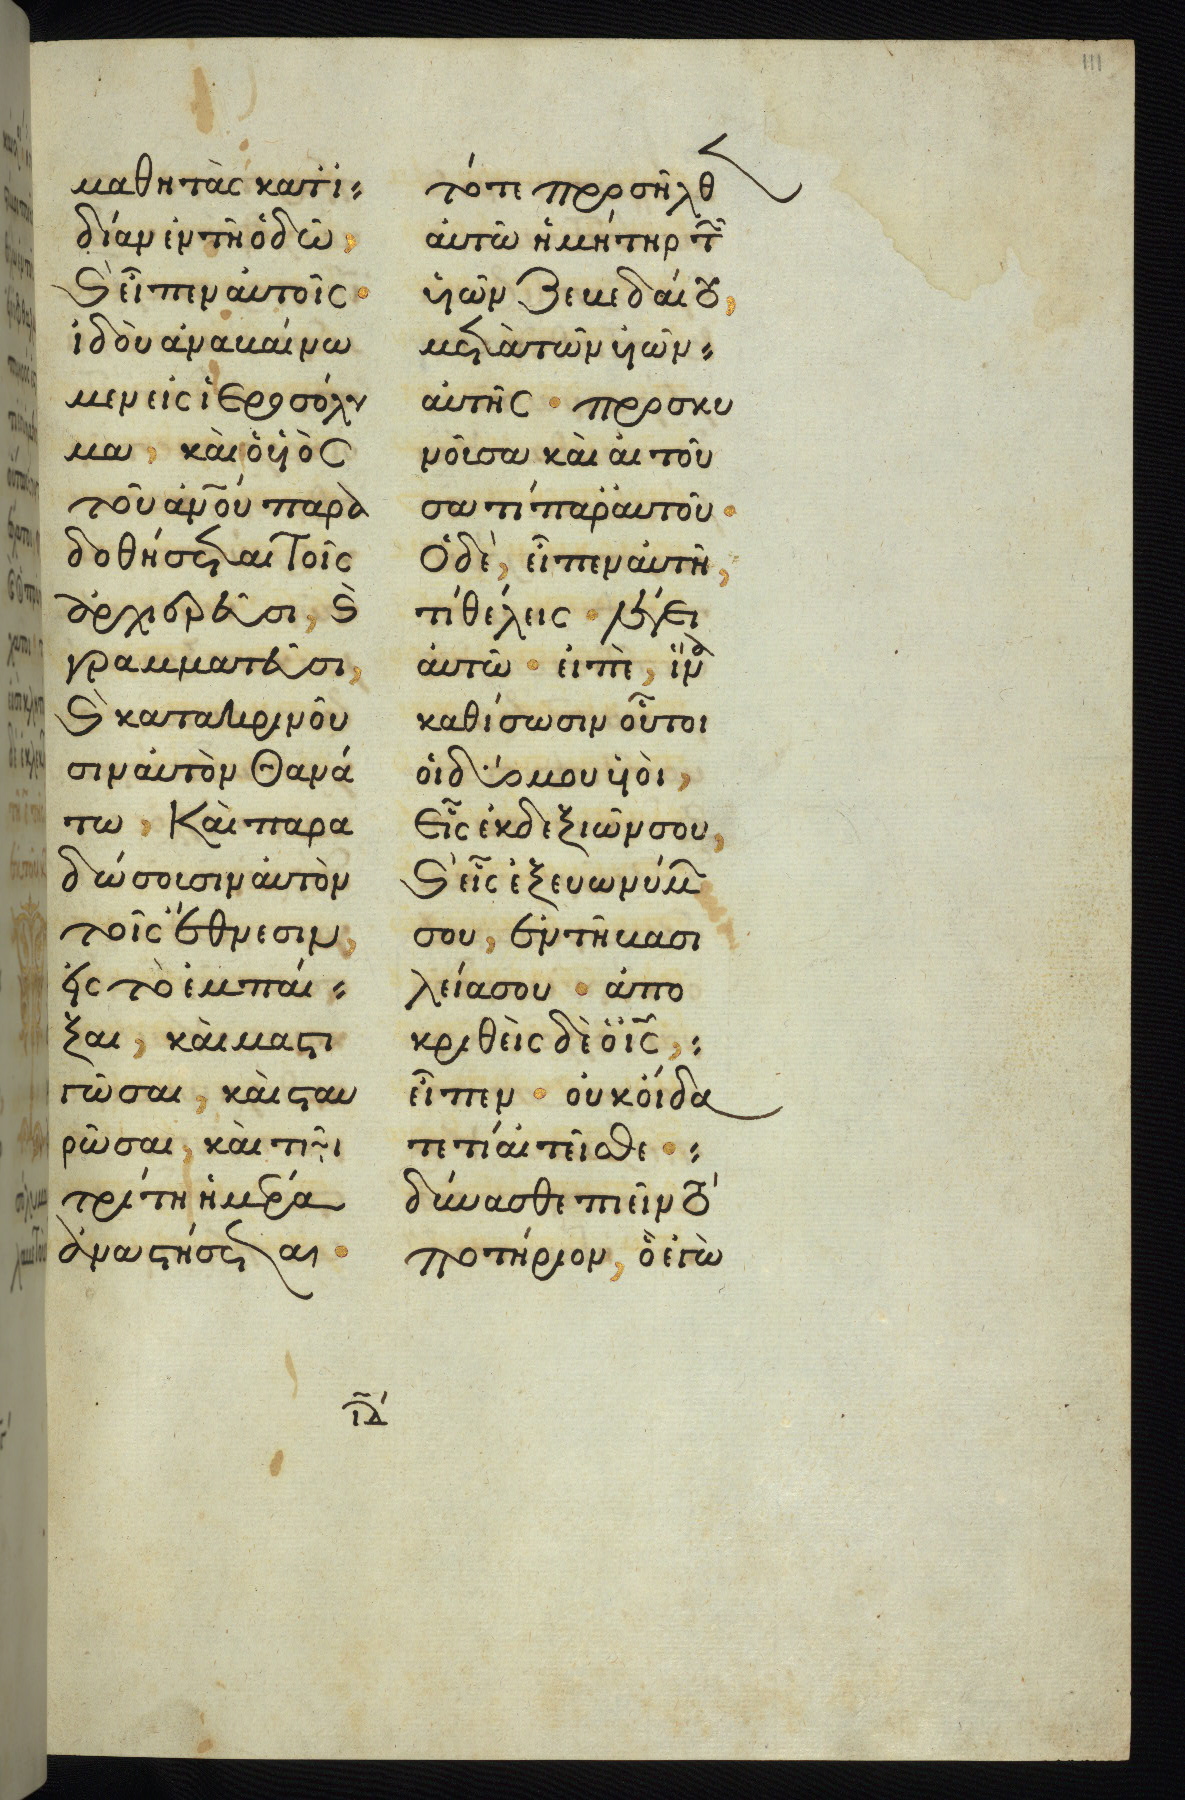 111
μαθητὰς κατἰ-
δίαν ἐν τῆ ὁδῶ,
ϗ εἶπεν αὐτοῖς·
ἰδοὺ ἀναβαίνω
μεν εἰς ἱεροσόλυ
μα, καὶ ὁ υἱὸς
τοῦ ἀνου παρα
δοθήσεται τοῖς
ἀρχιερεῦσι, ϗ
γραμματεῦσι,
ϗ κατακρινοῦ
σιν αὐτὸν θανά
τω, καὶ παρα
δώσουσιν αὐτὸν
τοῖς ἔθνεσιν,
εἰς τὸ ἐμπαῖ-
ξαι, καὶ μαστι
γῶσαι, καὶ σταυ
ρῶσαι, καὶ τῆ
τρίτη ἡμέρα
ἀναστήσεται·
τότε προσῆλθεν
αὐτῶ ἡ μήτηρ τῶν
υἱῶν Ζεβεδαίου,
μετὰ τῶν υἱῶν-
αὐτῆς· προσκυ
νοῦσα καὶ αἰτοῦ
σα τί παρ' αὐτοῦ·
Ὁ δὲ, εἶπεν αὐτῆ,
τί θέλεις· λέγει
αὐτῶ· εἰπὲ, ἵνα
καθίσωσιν οὗτοι
οἱ δύο μου υἱοὶ,
εἷς ἐκ δεξιῶν σου,
ϗ εἷς ἐξ εὐωνύμων
σου, ἐν τῆ βασι
λεία σου· ἀπο
κριθεὶς δὲ ὁ ις,
εἶπεν· οὐκ οἴδα
τε τί αἰτεῖσθε·
δύνασθε πιεῖν τὸ
ποτήριον, ὃ ἐγὼ
ιδ